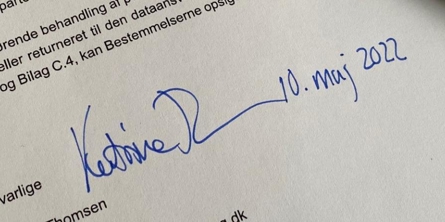 parte
ørende behandling af p
eller returneret til den dataansv
og Bilag C.4, kan Bestemmelserne opsig
10. maj 2022
varlige
Thomsen
g.dk